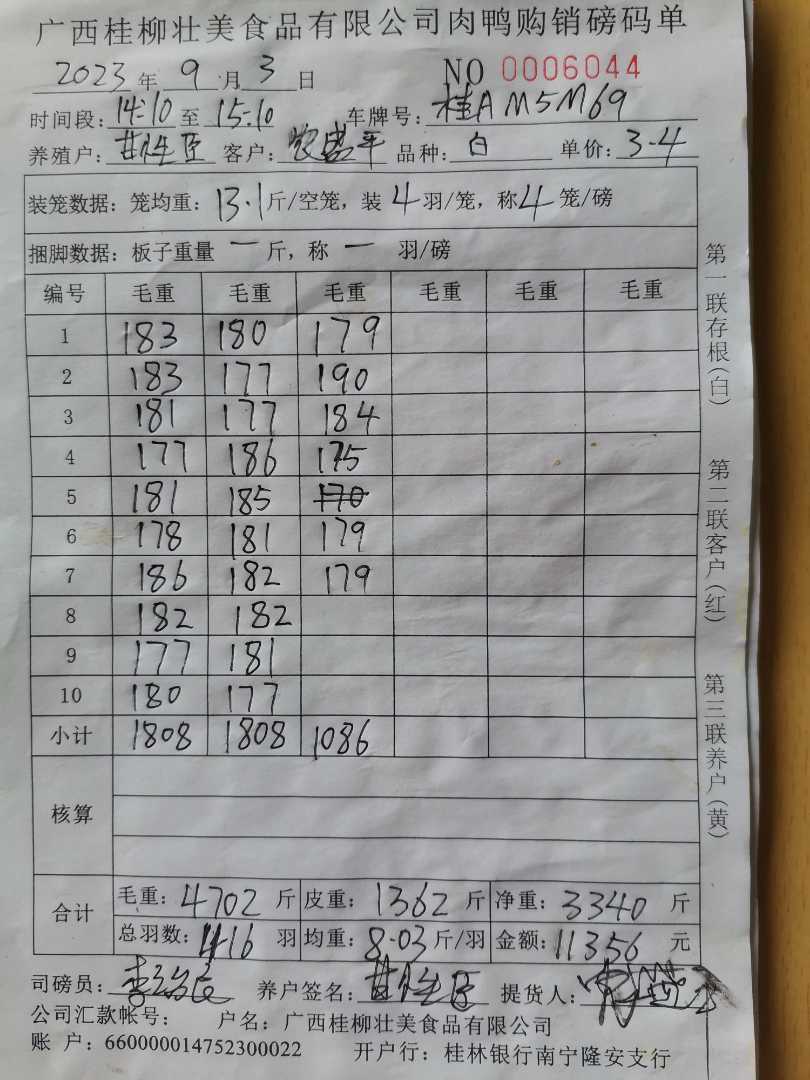 广西桂柳壮美食品有限公司肉鸭购销磅码单
2023 年 9 月 3 日 NO 0006044
时间段: 14:10 至 15:10 车牌号: 桂A M5M69
养殖户: 甘胜臣 客户: 农盛平 品种: 白 单价: 3.4
装笼数据: 笼均重: 13.1 斤/空笼, 装 4 羽/笼, 称 4 笼/磅
捆脚数据: 板子重量 一 斤, 称 一 羽/磅
编号 毛重 毛重 毛重 毛重 毛重 毛重
1 183 180 179
2 183 177 190
3 181 177 184
4 177 186 175
5 181 185 170
6 178 181 179
7 186 182 179
8 182 182
9 177 181
10 180 177
小计 1808 1808 1086
核算
合计 毛重: 4702 斤 皮重: 1362 斤 净重: 3340 斤
总羽数: 416 羽 均重: 8.03 斤/羽 金额: 11356 元
司磅员: 养户签名: 甘胜臣 提货人:
公司汇款帐号: 户名: 广西桂柳壮美食品有限公司
账 户: 660000014752300022 开户行: 桂林银行南宁隆安支行
第一联存根(白)
第二联客户(红)
第三联养户(黄)